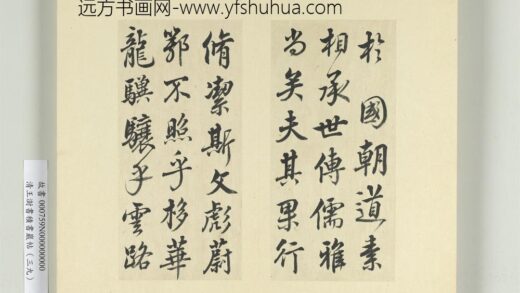 远方书画网-www.yfshuhua.com
於國朝道素
相承世傳儒雅
当矣夫其果行
脩潔斯文彪蔚
鄂不照乎移華
龍驥驤乎雲路
故書 000759N00000000
清王澍書積書巖帖（三九）